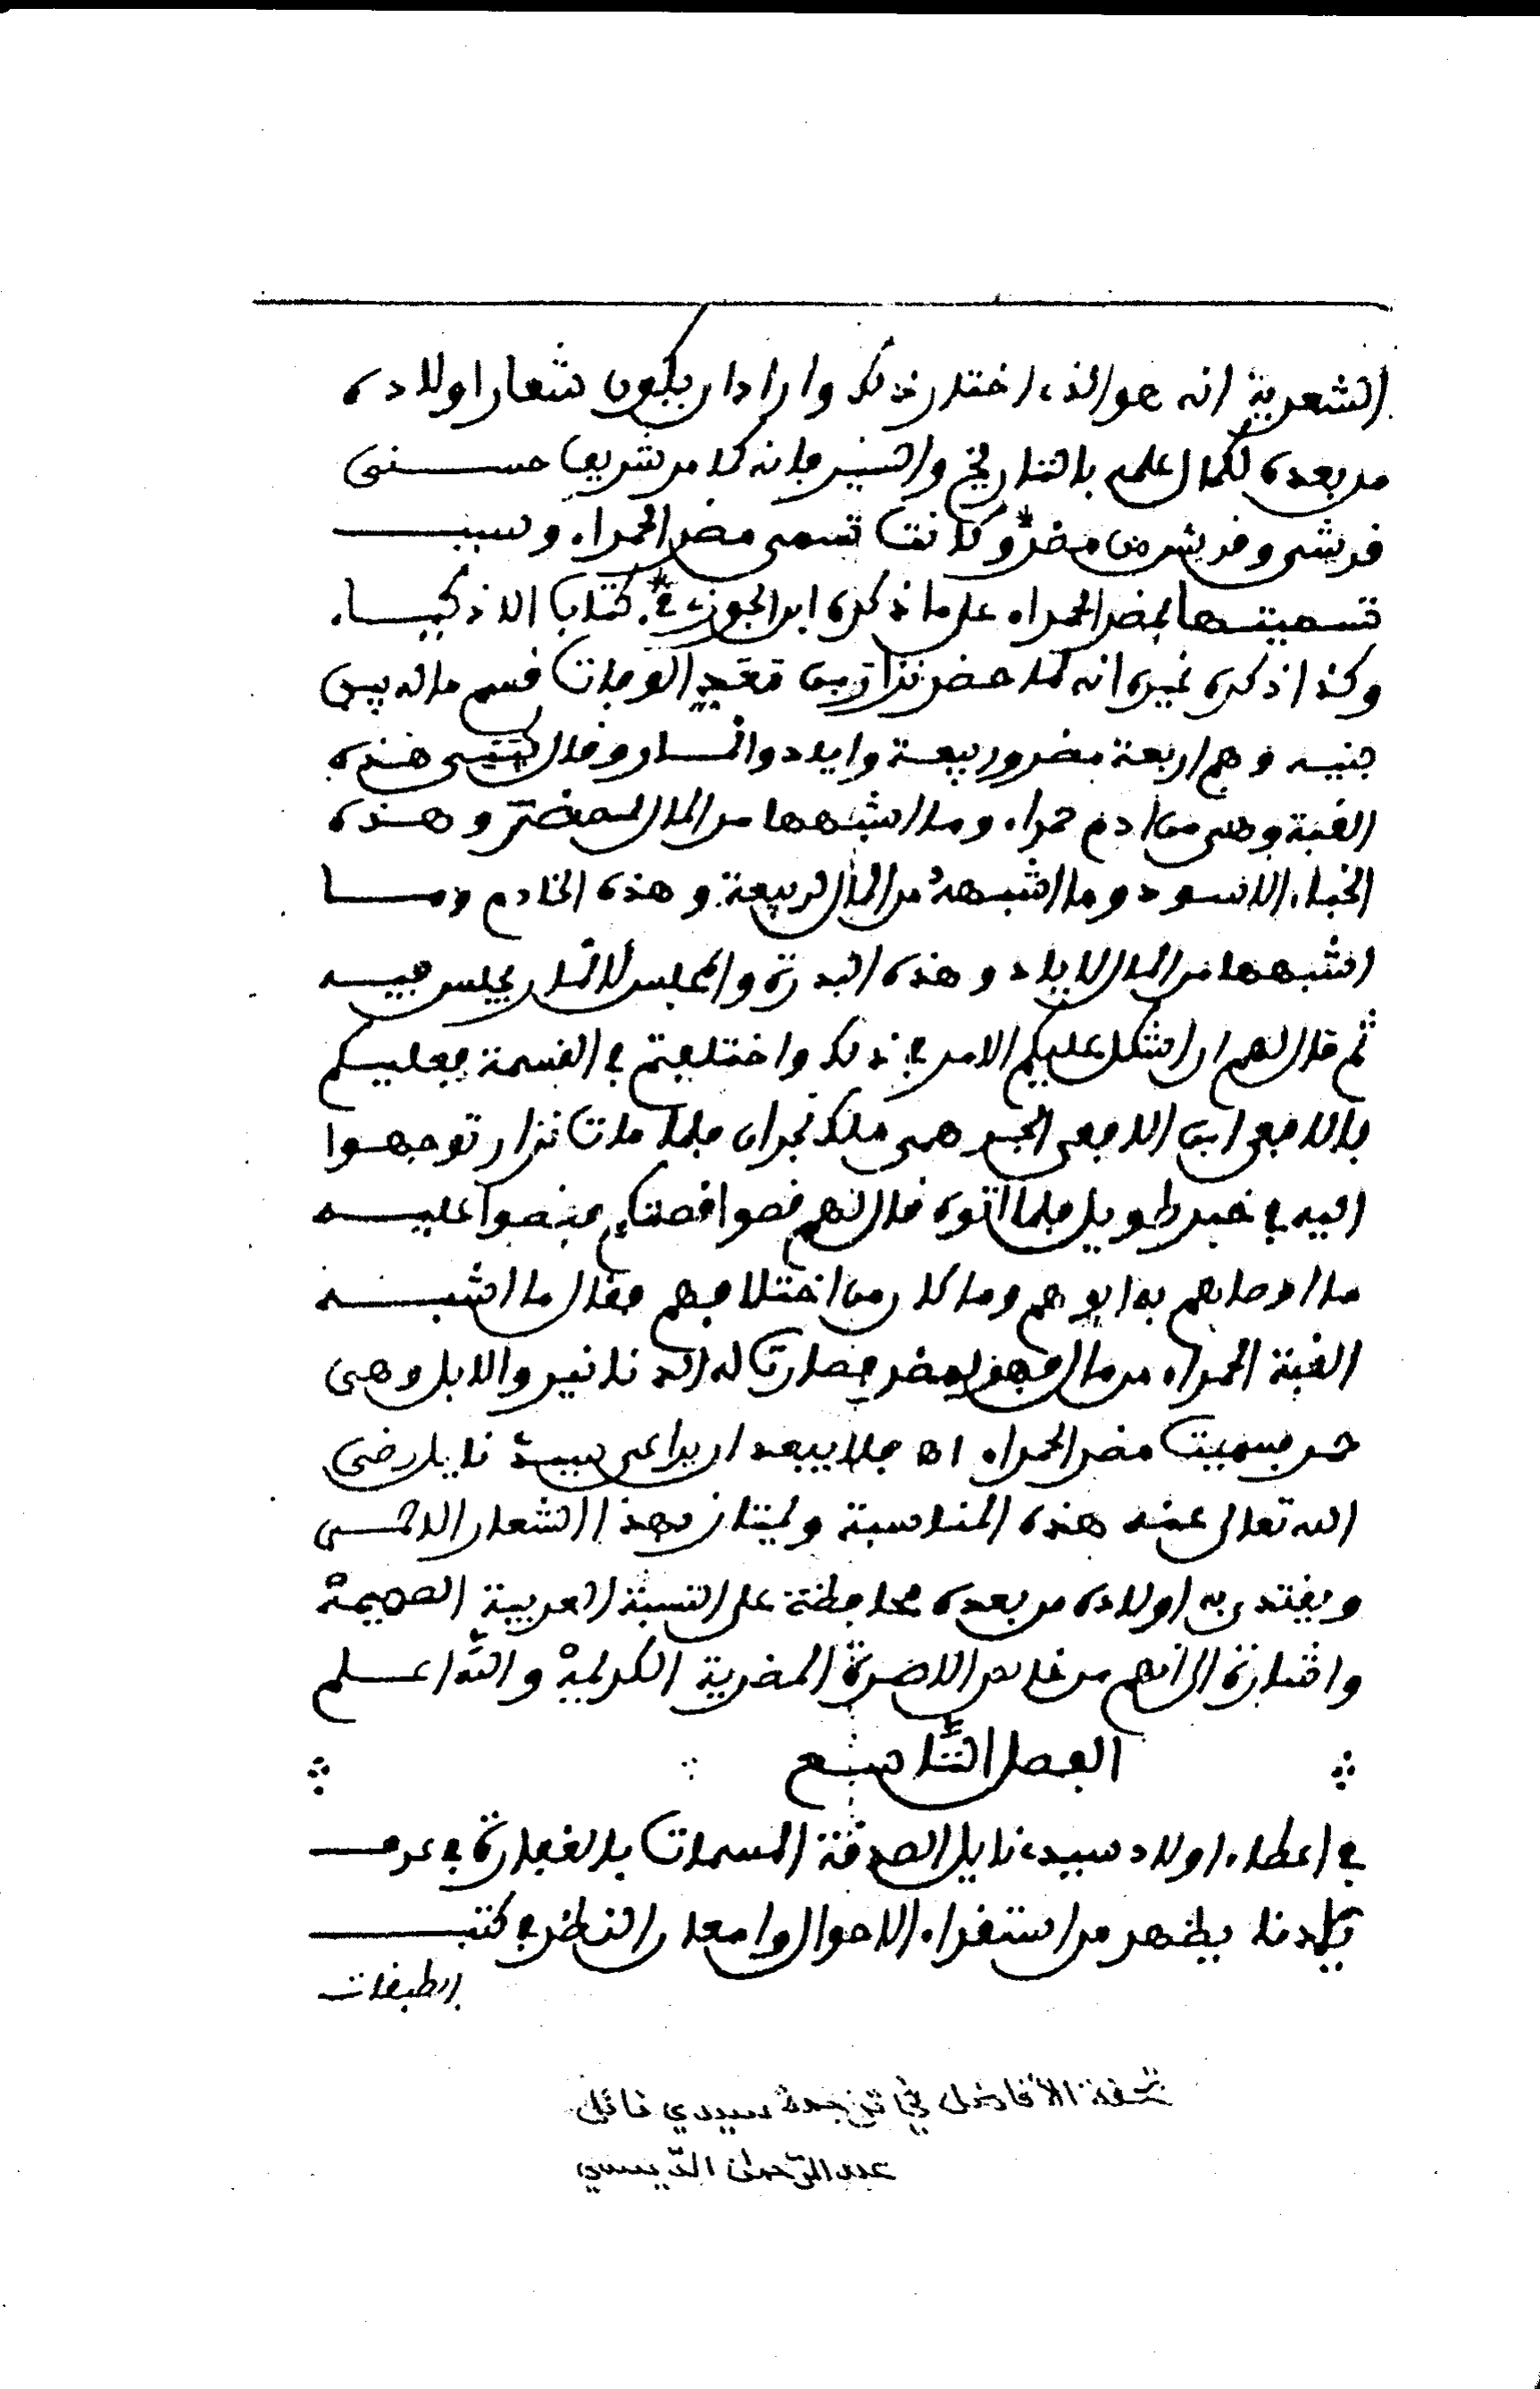 الشعرية انه هو الذي اختار ذلك واراد ان يكون شعارا ولاده
من بعده لكمال علمه بالتاريخ والسير فانه كان من شريف حسنى
قرشى وقريش من مضر وكانت تسمى مضر الحمراء وسبب
تسميتها بمضر الحمراء على ما ذكره ابن الجوزي في كتاب الاذكياء
وكذا ذكره غيره انه لما حضر نزار بن معد الوفات قسم ماله بين
بنيه وهم اربعة مضر وربيعة واياد وانمار وقال يا بنى هذه
القبة وهى من ادم حمراء وما اشبهها من المال لمضر وهذه
الخباء الاسود وما اشبهه من المال لربيعة وهذه الخادم وما
اشبهها من المال لاياد وهذه البدرة والمجلس لانمار يجلس فيه
ثم قال لهم ان اشكل عليكم الامر في ذلك واختلفتم في القسمة فعليكم
بالافعى ابن الافعى الجرهمى ملك نجران فلما مات نزار توجهوا
اليه في خبر طويل فلما اتوه قال لهم قصوا قصتكم فنصوا عليه
ما اوصاهم به ابوهم وما كان من اختلافهم فقال ما اشبه
القبة الحمراء من مال فهو لمضر فصارت له الدنانير والابل وهى
حمر فسميت مضر الحمراء اه فلا يبعد ان يراعى سيدي نايل رضى
الله تعالى عنه هذه المناسبة وليمتاز بهذا الشعار الاحمر
ويقتدي به اولاده من بعده محافظة على النسبة العربية الصميمة
واشارة الى انهم من خالص الاصرة المضرية الكريمة والله اعلم
الفصل التاسع
في اعطاء اولاد سيدي نايل الصدقة المسمات بالغفارة في عرف
بلادنا يظهر من استقراء الاحوال وامعان النظر في كتب
الطبقات
تحفة الأفاضل في ترجمة سيدي نائل
عبد الرّحمان الدّيسي